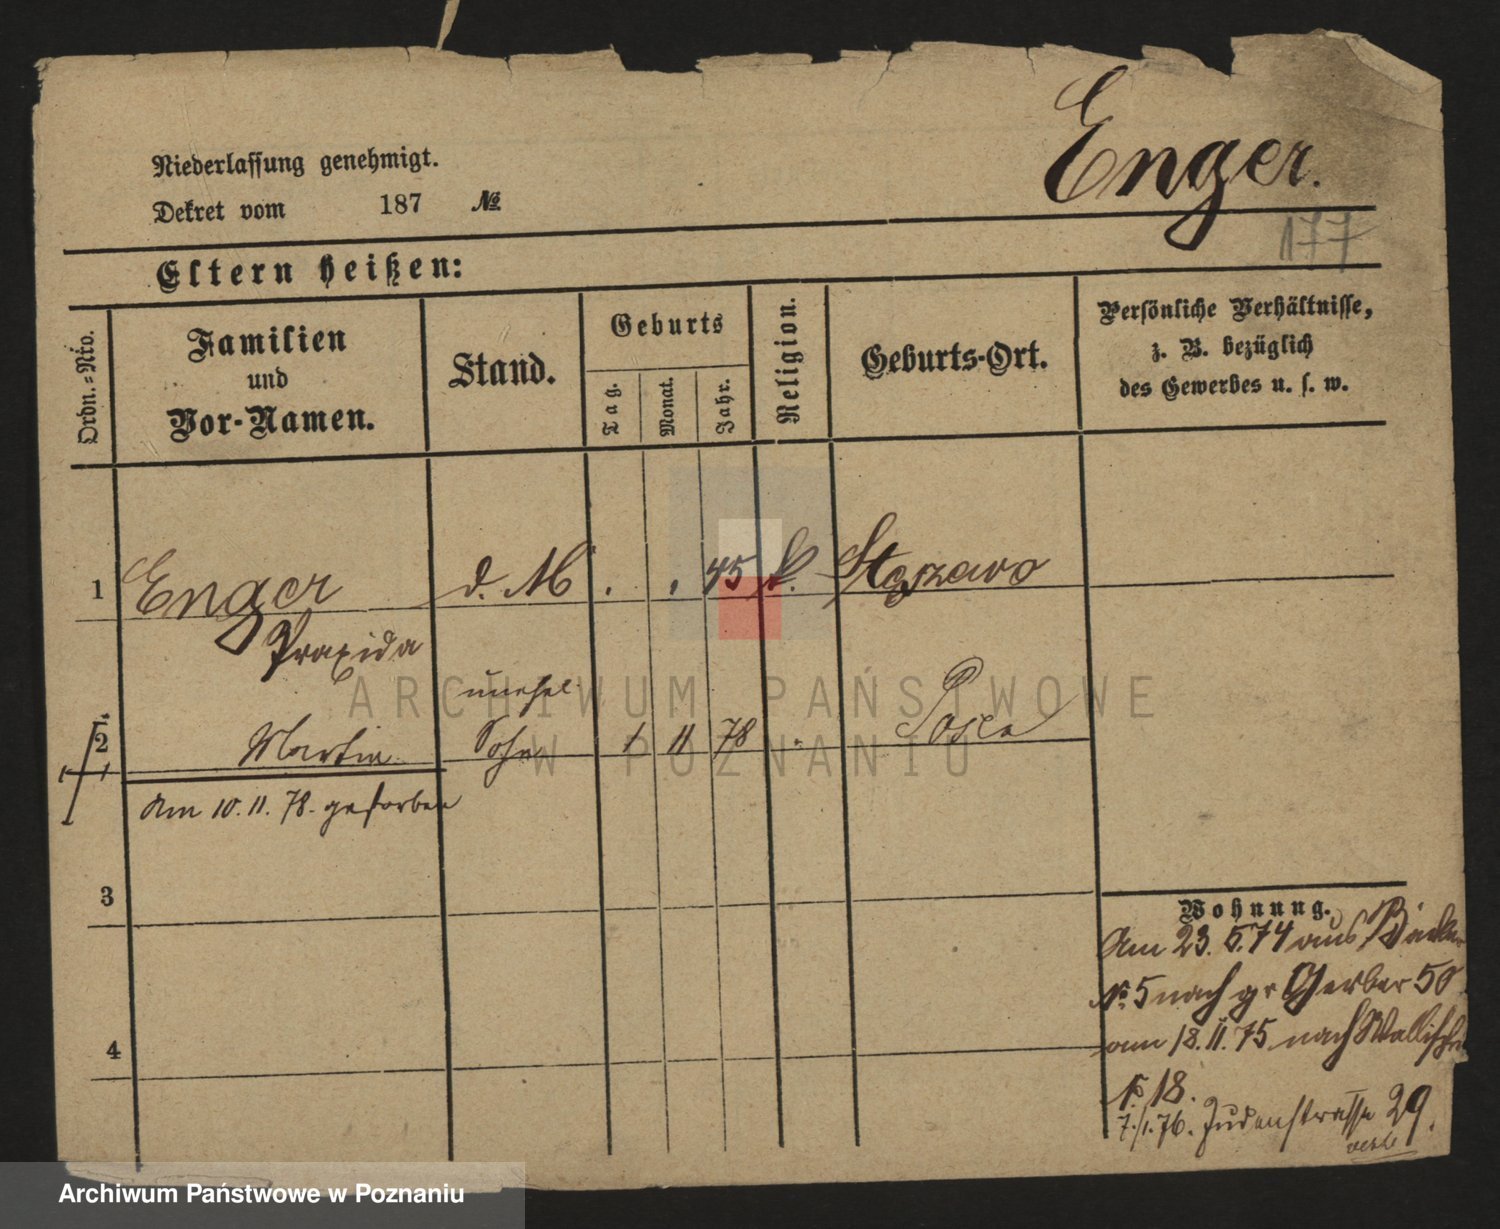 Enger.
Niederlassung genehmigt.
Dekret vom 187 №
177
Eltern heißen:
Ordn.=Nro.
Familien
und
Vor-Namen.
Stand.
Geburts
Tag.
Monat.
Jahr.
Religion.
Geburts-Ort.
Persönliche Verhältnisse,
z. B. bezüglich
des Gewerbes u. s. w.
1 Enger d. M . . 45 k.
Praxida
unehel.
2 Martin Sohn 1 11 78 Posen
Am 10. 11. 78. gestorben
3
Wohnung.
Am 23. 5. 74 aus
№ 5 nach gr Gerber 50
4
am 18. 11. 75 nach Wallischei
№ 18.
7./1. 76. Judenstrasse 29.
ARCHIWUM PAŃSTWOWE
W POZNANIU
Archiwum Państwowe w Poznaniu